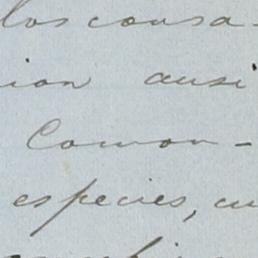 los consa-
ion ausi
Comon-
especies, cu